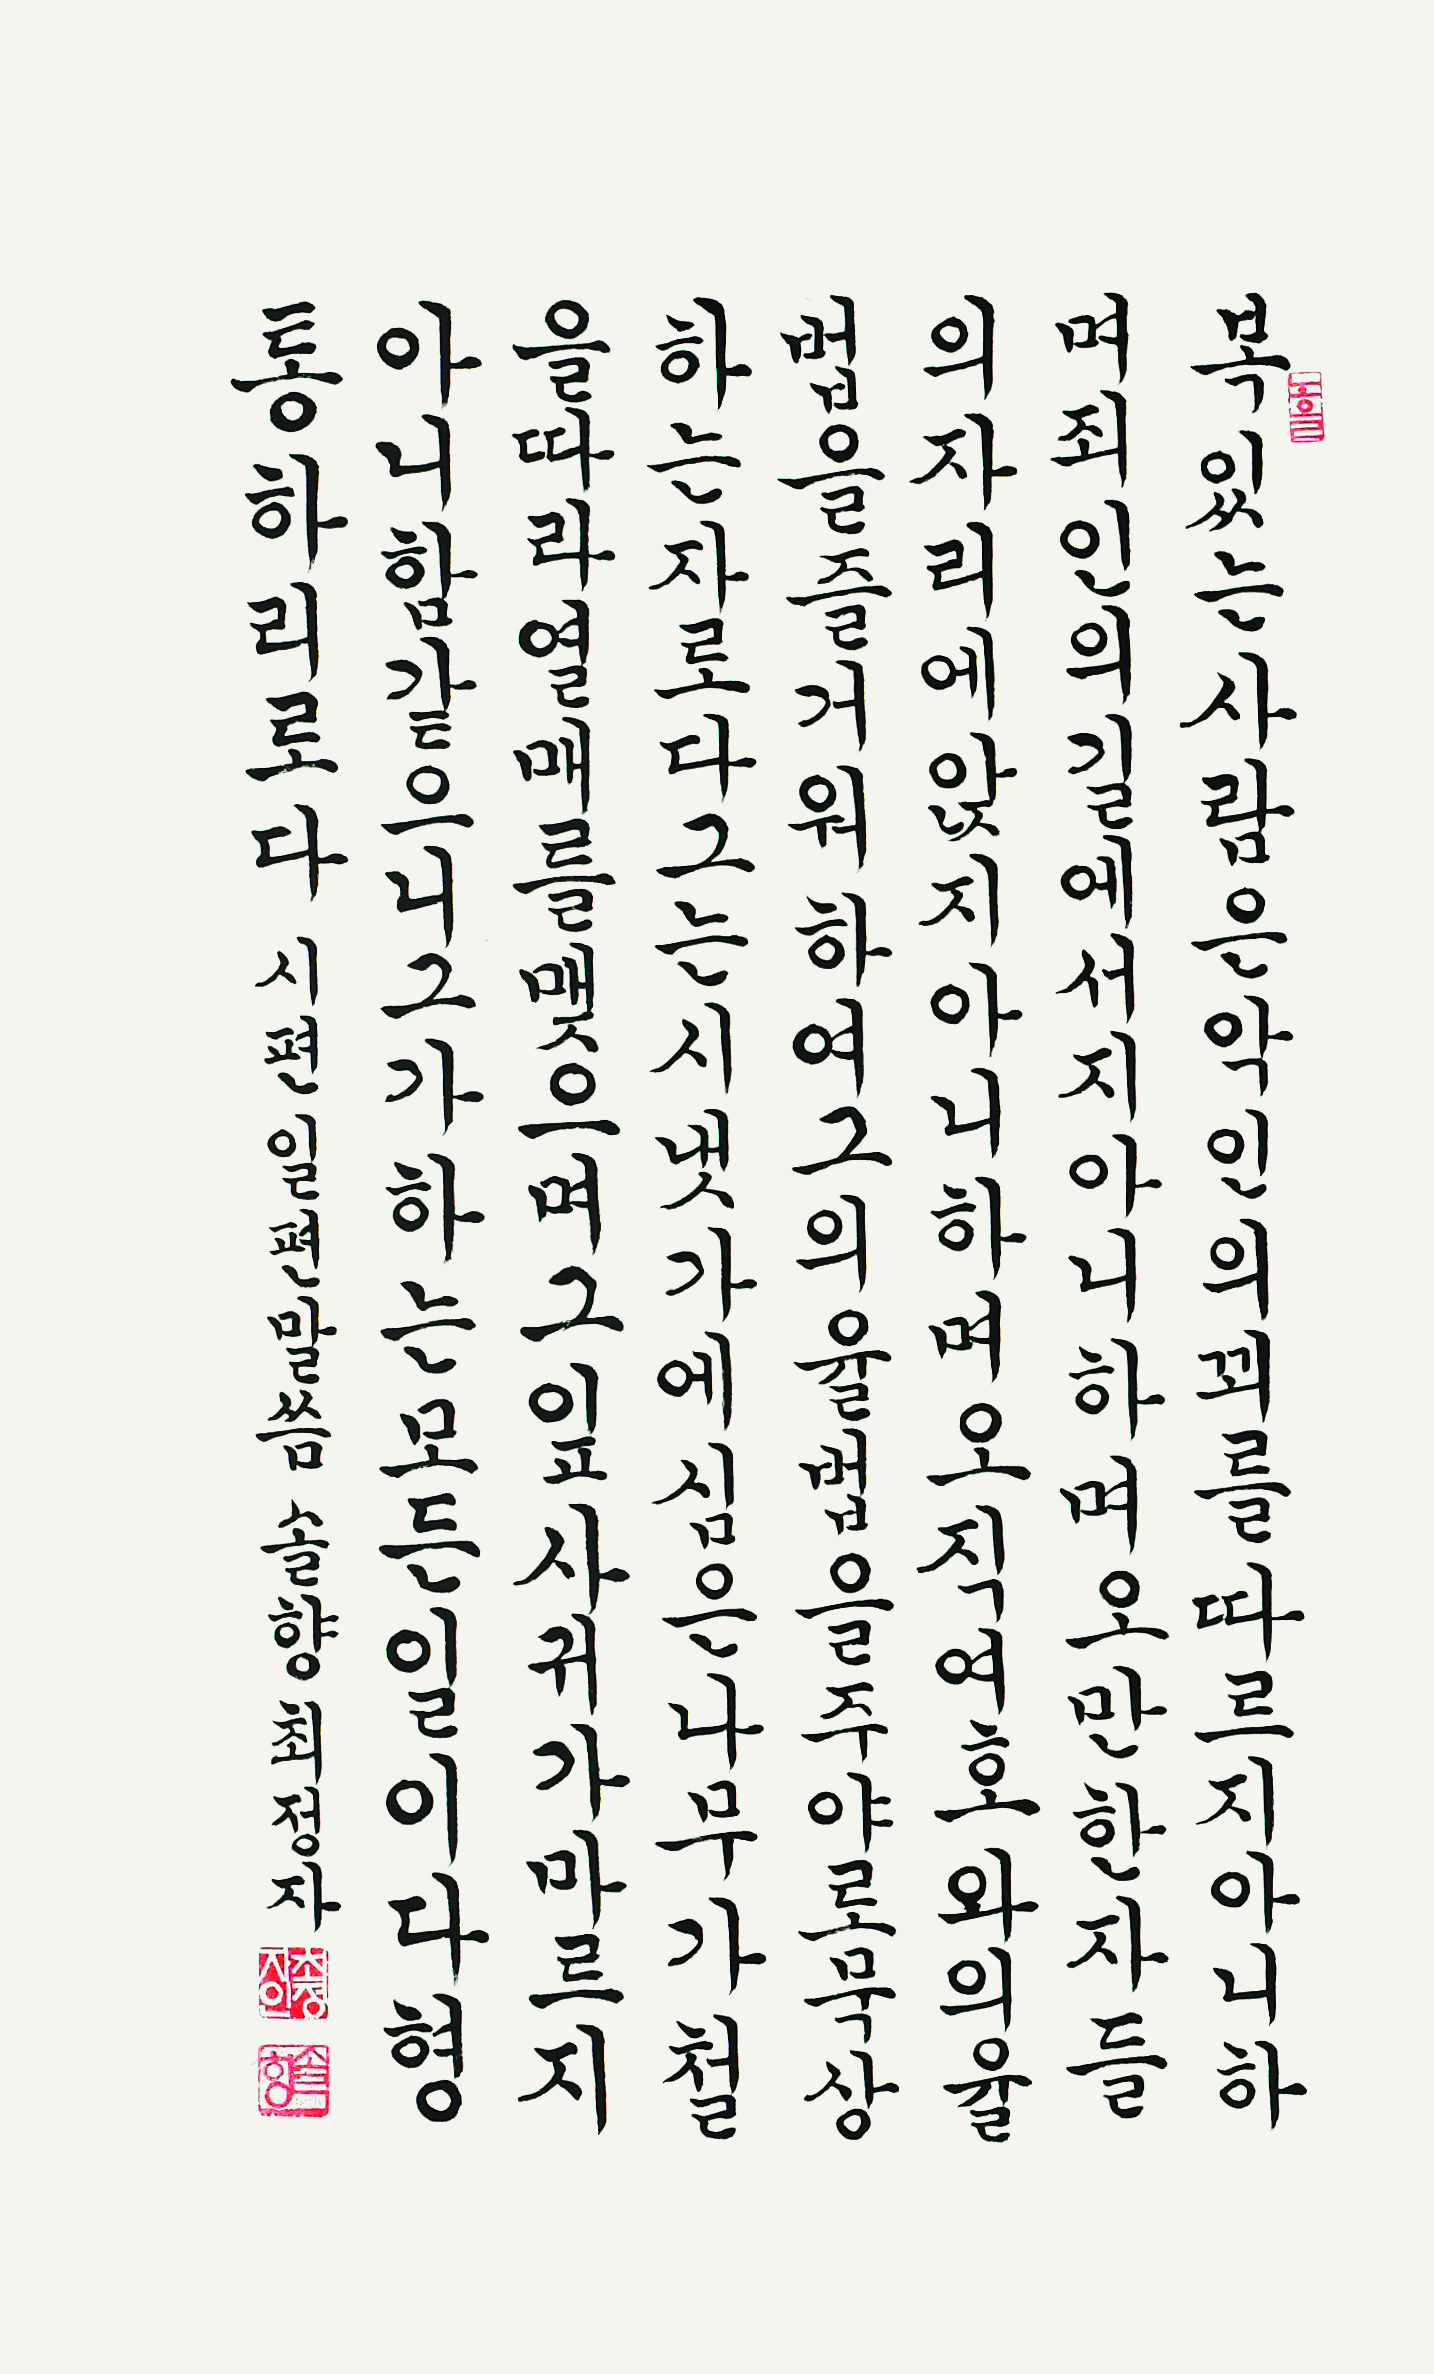 복있는사람은악인의꾀를따르지아니하
며죄인의길에서지아니하며오만한자들
의자리에앉지아니하며오직여호와의율
법을즐거워하여그의율법을주야로묵상
하는자로다그는시냇가에심은나무가철
을따라열매를맺으며그잎사귀가마르지
아니함같으니그가하는모든일이다형
통하리로다 시편일편말씀 솔향 최정자
최정자인
솔향